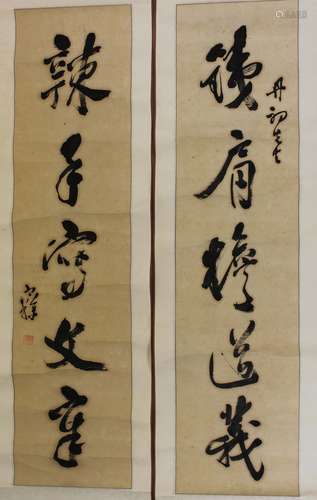 丹初先生
鐵肩擔道義
辣手寫文章